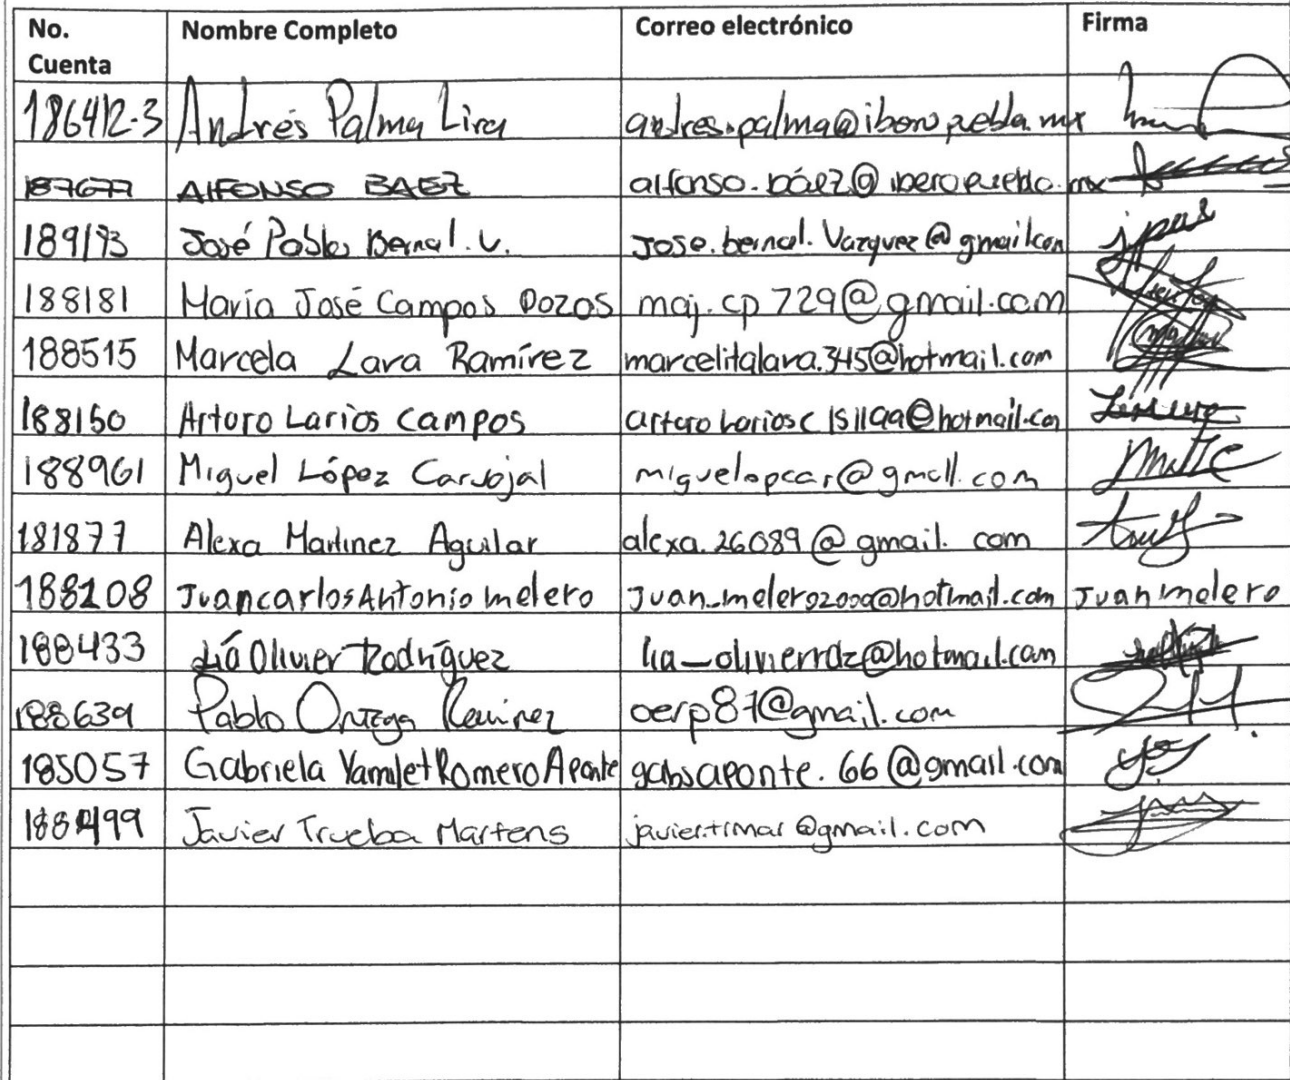 No. Cuenta Nombre Completo Correo electrónico Firma
186412-3 Andrés Palma Lira andres.palma@iberopuebla.mx
187677 AlFONSO BAEZ alfonso.báez@iberopuebla.mx
189193 José Pablo Bernal. V. Jose.bernal.Vazquez@gmail.com
188181 María José Campos Dozos maj.cp729@gmail.com
188515 Marcela Lara Ramírez marcelitalara.345@hotmail.com
188150 Arturo Larios Campos arturolariosc151199@hotmail.com
188961 Miguel López Carvajal miguelopcar@gmail.com
181877 Alexa Martinez Aguilar alexa.26089@gmail.com
188108 Juan carlos Antonio melero Juan_melero2000@hotmail.com Juan melero
188433 Lía Olivier Rodríguez lia_olivierrdz@hotmail.com
188639 Pablo Ortega Ramirez oerp87@gmail.com
185057 Gabriela Yamilet Romero Aponte gabsaponte.66@gmail.com
188499 Javier Trueba Martens javiertrmar@gmail.com